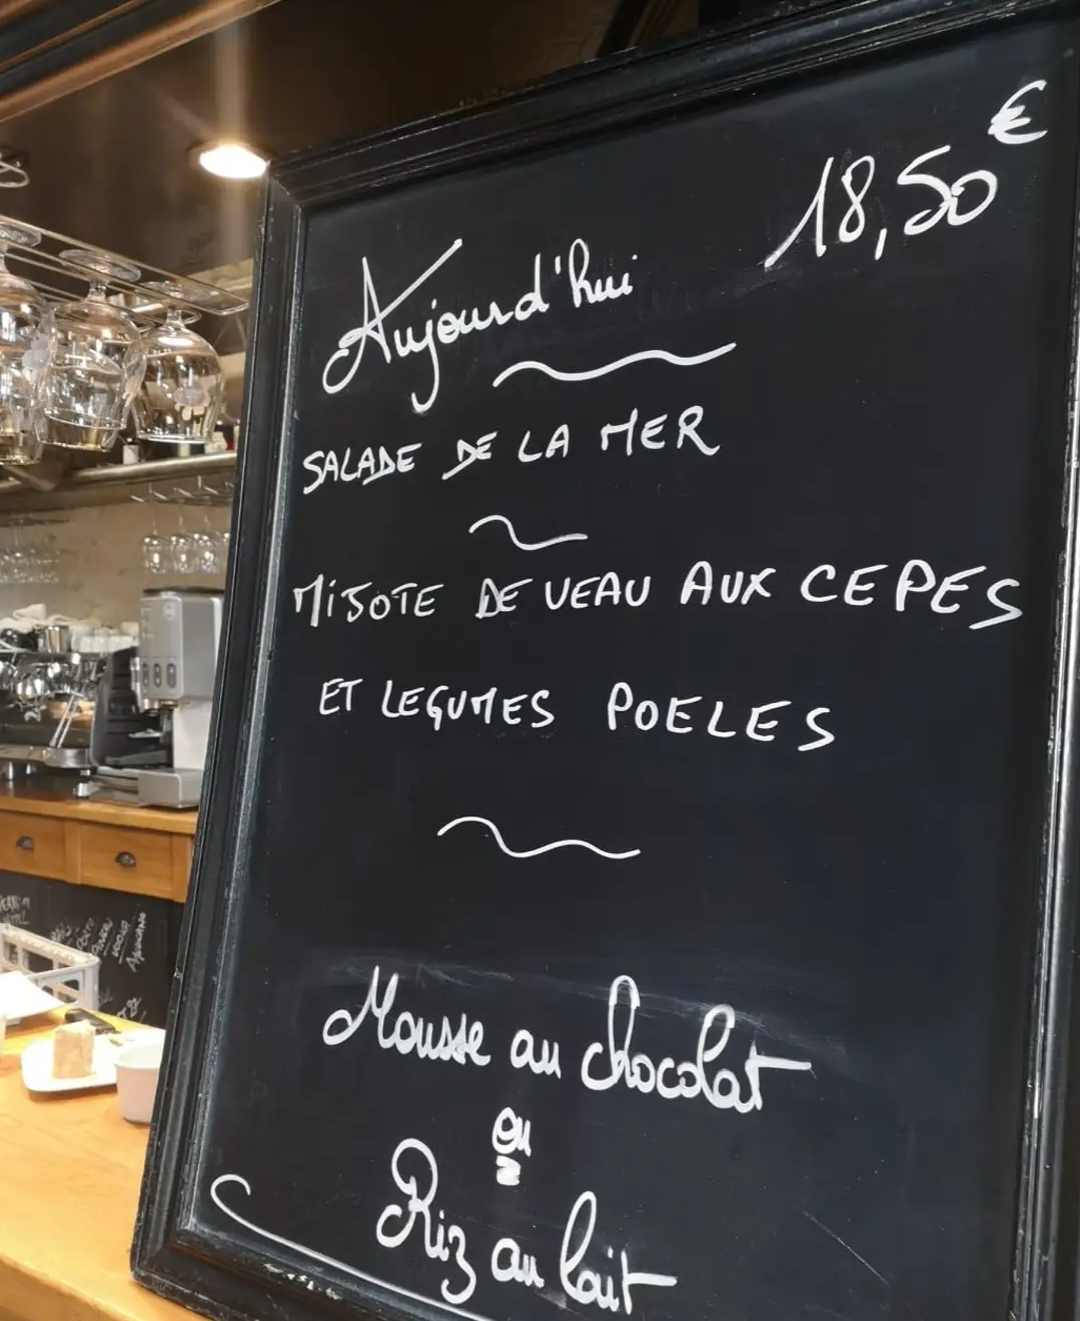 18,50€
Aujourd'hui
SALADE DE LA MER
MIJOTE DE VEAU AUX CEPES
ET LEGUMES POELES
Mousse au chocolat
ou
Riz au lait